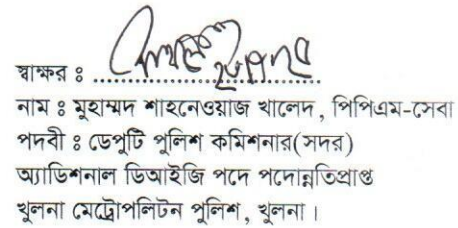 স্বাক্ষর ঃ ........................................
নাম ঃ মুহাম্মদ শাহনেওয়াজ খালেদ, পিপিএম-সেবা
পদবী ঃ ডেপুটি পুলিশ কমিশনার(সদর)
অ্যাডিশনাল ডিআইজি পদে পদোন্নতিপ্রাপ্ত
খুলনা মেট্রোপলিটন পুলিশ, খুলনা।